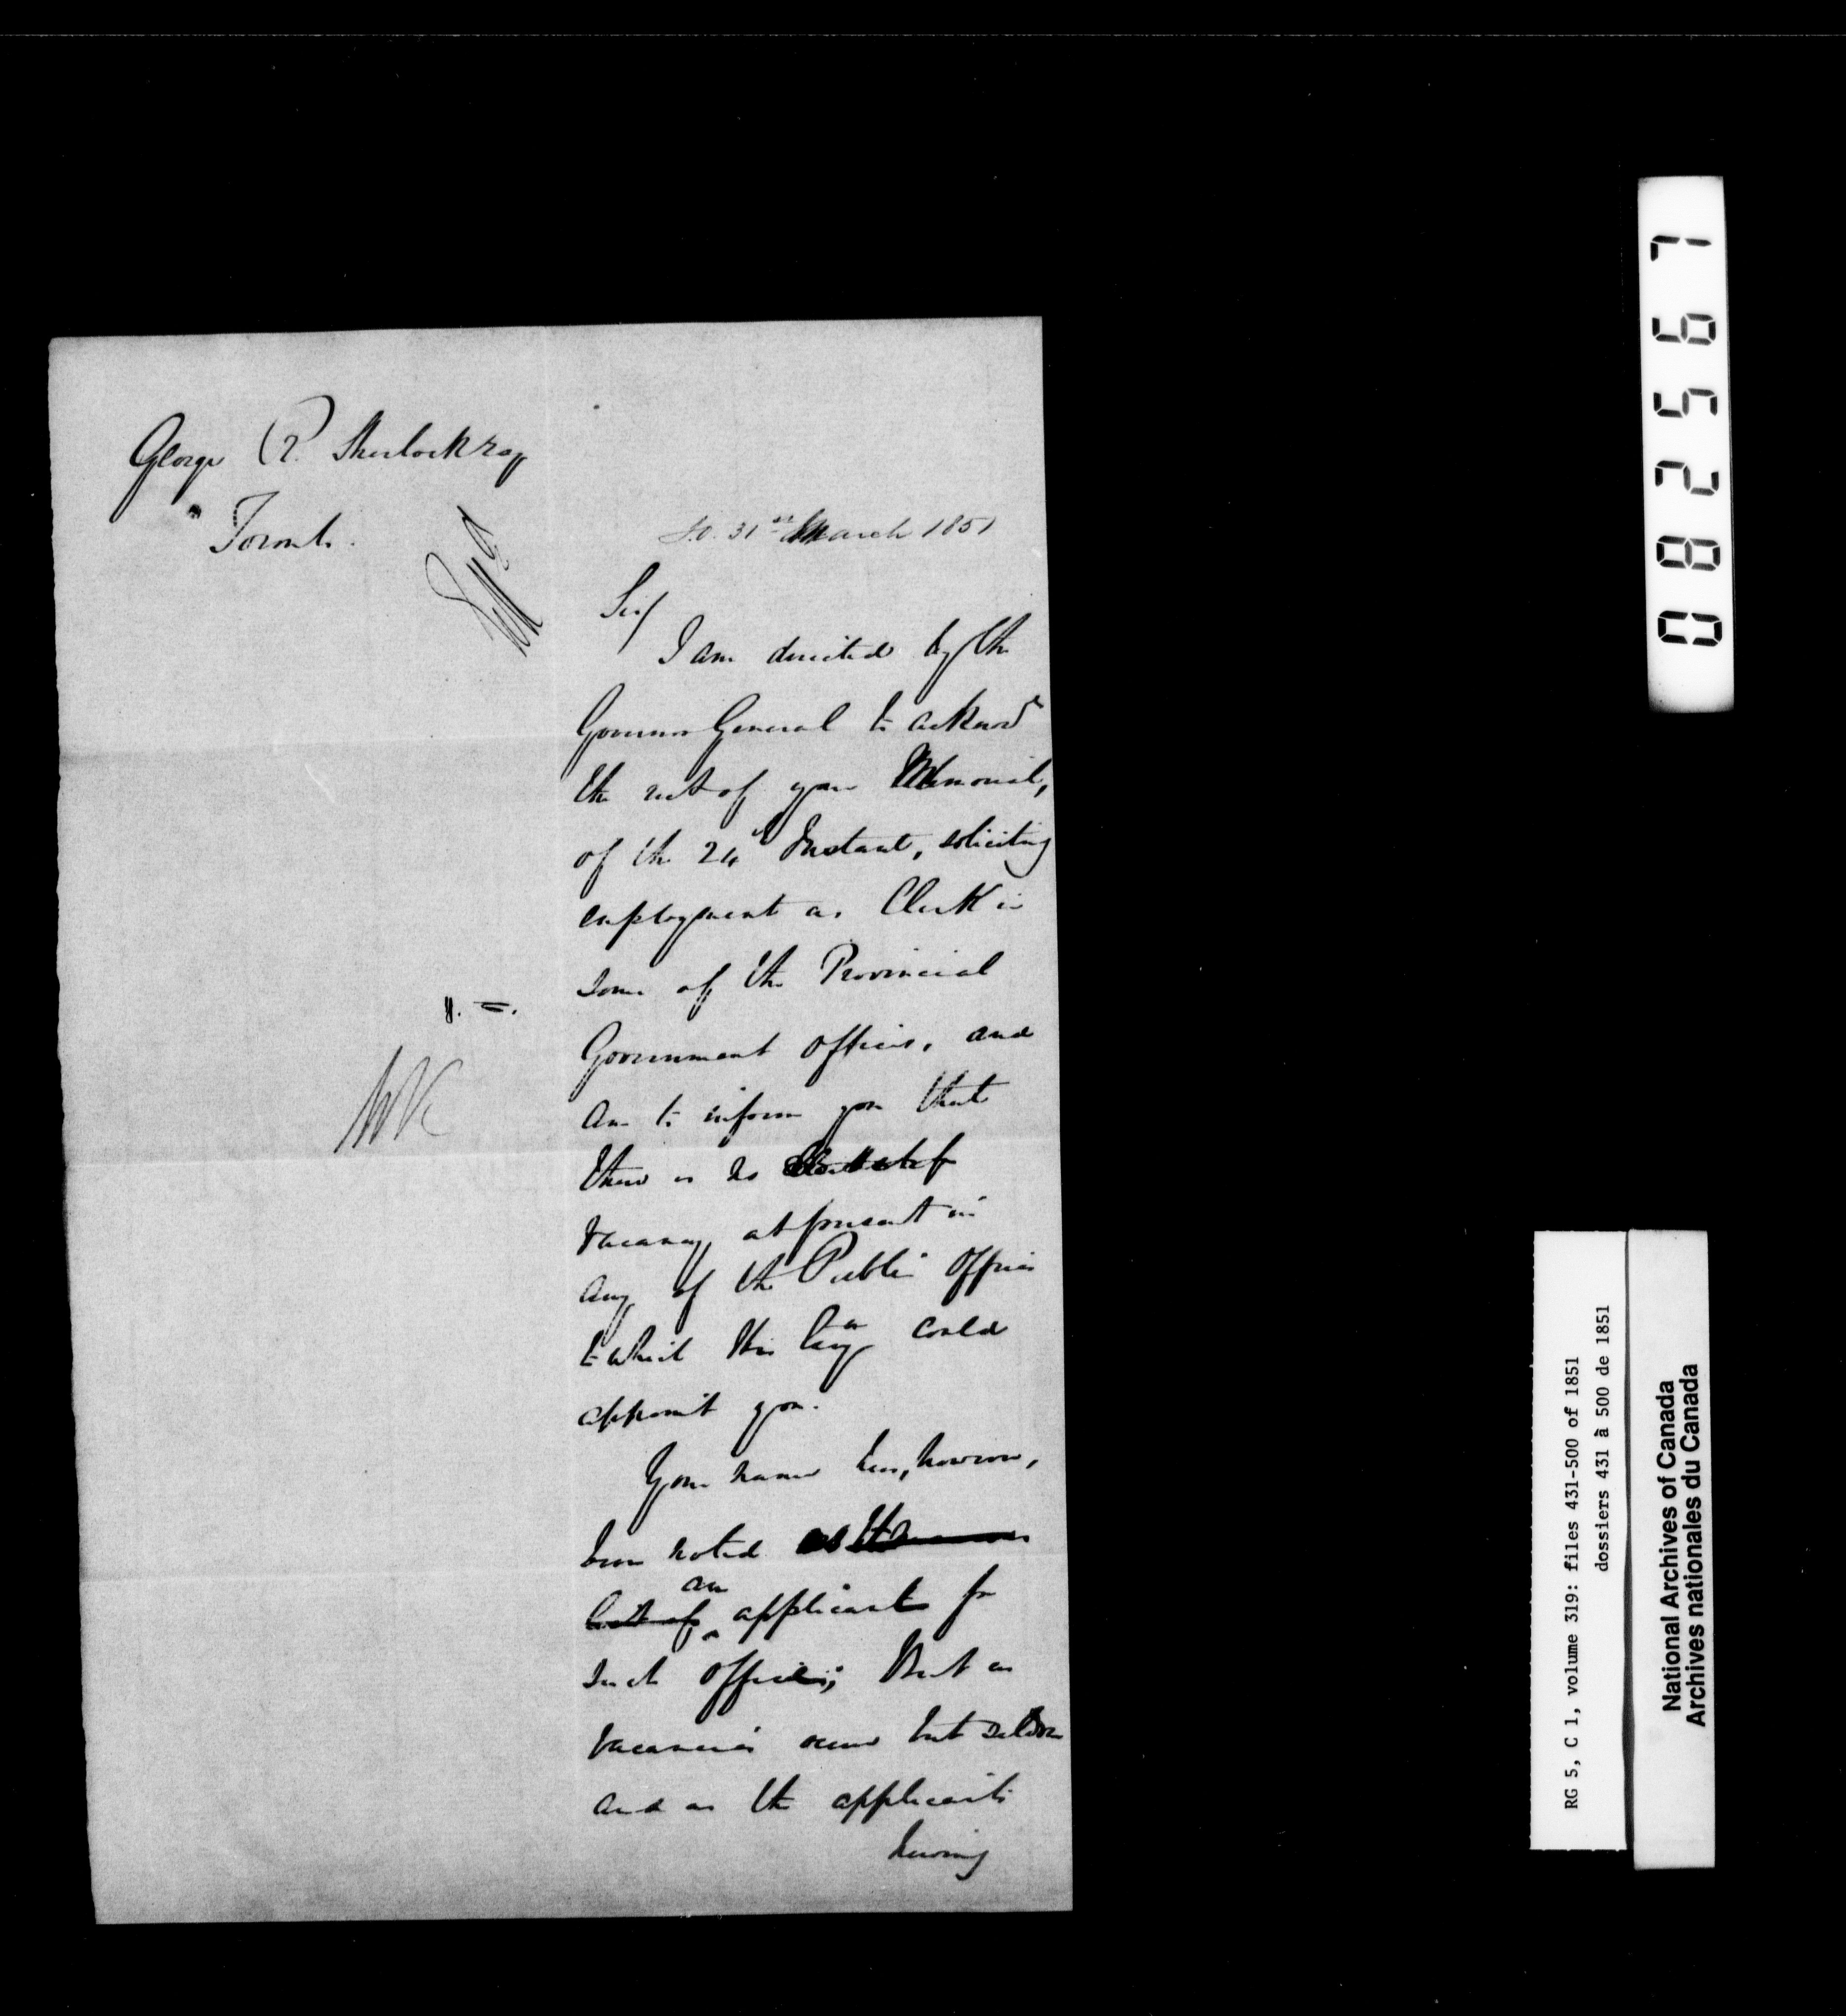 George R. Sherlock Esq
Toronto.
S.O. 31st March 1851
Sir/
I am directed by the
Governor General to acknowe
the rect of your Memorial,
of the 24th Instant, soliciting
employment as Clerk in
some of the Provincial
Government offices, and
am to inform you that
there is no
vacancy at present in
any of the Public Offices
to which His Excy could
appoint you.
Your name has, however,
been noted as
list of an applicants for
such offices; But as
vacancies occur but seldom
and as the applicants
having
082567
RG 5, C 1, volume 319: files 431-500 of 1851
dossiers 431 à 500 de 1851
National Archives of Canada
Archives nationales du Canada